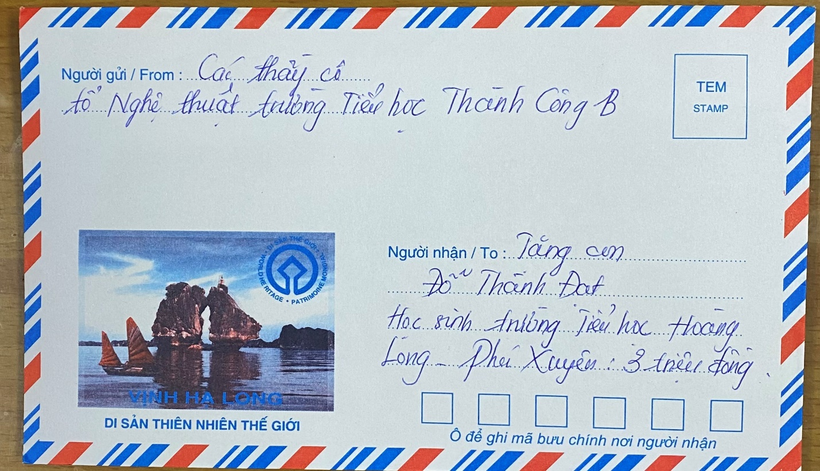 Người gửi / From : Các thầy cô
tổ Nghệ thuật trường Tiểu học Thành Công B
TEM
STAMP
DI SẢN THẾ GIỚI
WORLD HERITAGE • PATRIMOINE MONDIAL
Người nhận / To : Tặng con
Đỗ Thành Đạt
Học sinh trường Tiểu học Hoàng
Long - Phú Xuyên : 3 triệu đồng.
VỊNH HẠ LONG
DI SẢN THIÊN NHIÊN THẾ GIỚI
Ô để ghi mã bưu chính nơi người nhận